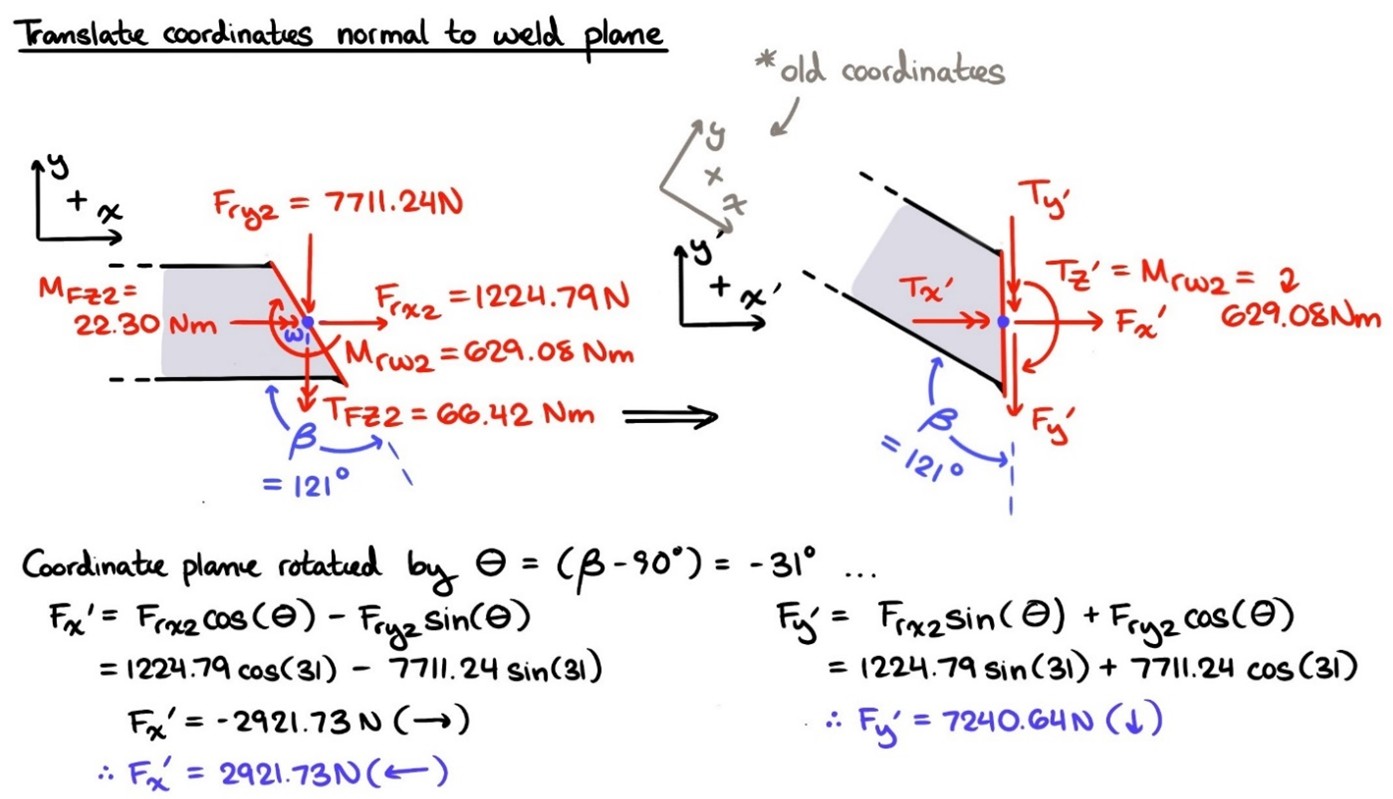 Translate coordinates normal to weld plane
*old coordinates
y
+ x
y
+
x
y'
+ x'
Fry2 = 7711.24N
MFZ2=
22.30 Nm
Frx2 = 1224.79N
ω1
Mrw2 = 629.08 Nm
TFZ2 = 66.42 Nm
β
= 121°
Ty'
Tx'
Tz' = Mrw2 = 2
629.08Nm
Fx'
Fy'
β
= 121°
Coordinate plane rotated by θ = (β-90°) = -31° ...
Fx' = Frx2 cos(θ) - Fry2 sin(θ)
= 1224.79 cos(31) - 7711.24 sin(31)
Fx' = -2921.73 N (→)
∴ Fx' = 2921.73N (←)
Fy' = Frx2 sin(θ) + Fry2 cos(θ)
= 1224.79 sin(31) + 7711.24 cos(31)
∴ Fy' = 7240.64N (↓)